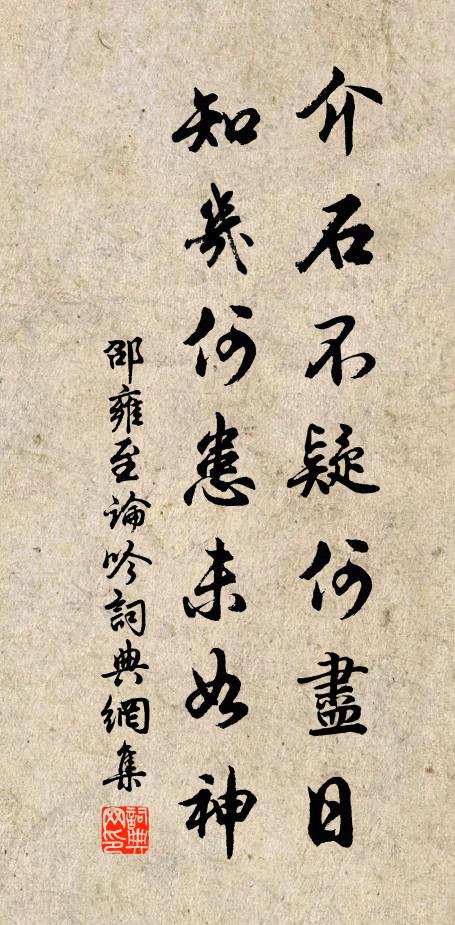 介石不疑何盡日
知幾何患未如神
邵雍至論吟詞典網集
詞典
网印